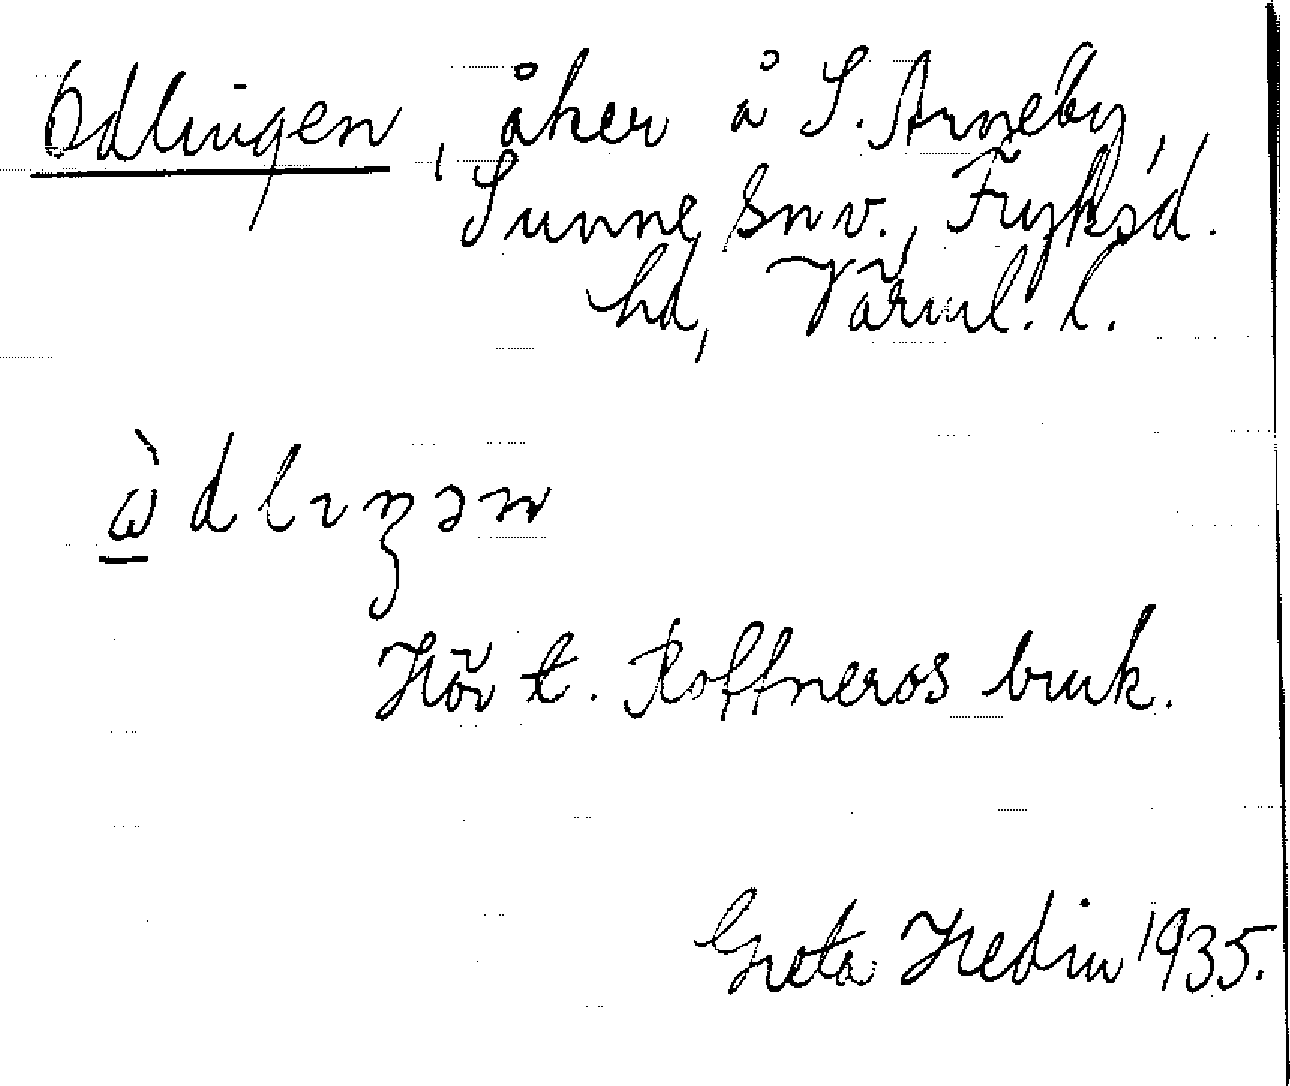 Odlingen, åker å S. Arneby,
Sunne snv., Fryksd.
hd, Värml. l.
ὼdlıŋən
Hör t. Roffneros bruk.
Greta Hedin 1935.